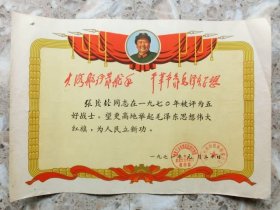 大海航行靠舵手 干革命靠毛泽东思想
张同志在一九七〇年被评为五
好战士，望更高地举起毛泽东思想伟大
红旗，为人民立新功。
一九七 年 月 日